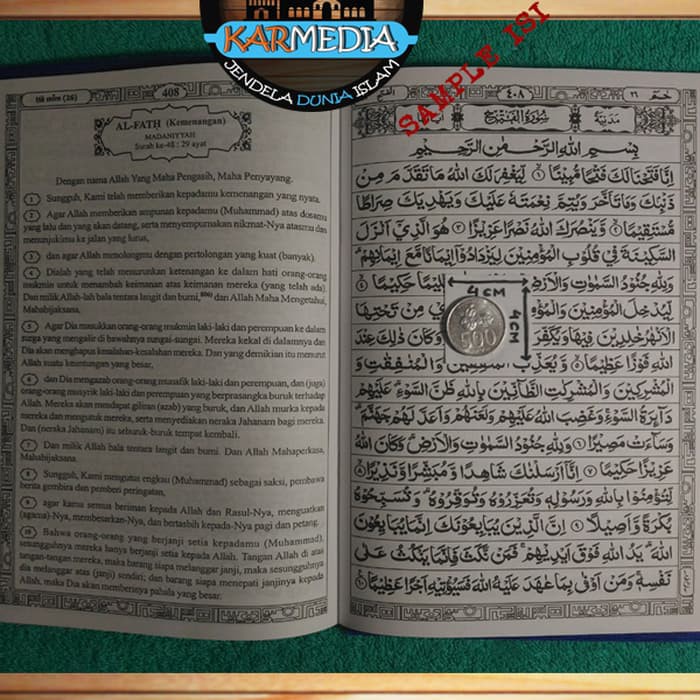 KARMEDIA
JENDELA DUNIA ISLAM
SAMPLE ISI
Hâ mîm (26)
408
AL-FATH (Kemenangan)
MADANIYYAH
Surah ke-48 : 29 ayat
Dengan nama Allah Yang Maha Pengasih, Maha Penyayang.
1 Sungguh, Kami telah memberikan kepadamu kemenangan yang nyata.
2 Agar Allah memberikan ampunan kepadamu (Muhammad) atas dosamu
yang lalu dan yang akan datang, serta menyempurnakan nikmat-Nya atasmu dan
menunjukimu ke jalan yang lurus,
3 dan agar Allah menolongmu dengan pertolongan yang kuat (banyak).
4 Dialah yang telah menurunkan ketenangan ke dalam hati orang-orang
mukmin untuk menambah keimanan atas keimanan mereka (yang telah ada).
Dan milik Allah-lah bala tentara langit dan bumi, dan Allah Maha Mengetahui,
Mahabijaksana.
5 Agar Dia masukkan orang-orang mukmin laki-laki dan perempuan ke dalam
surga yang mengalir di bawahnya sungai-sungai. Mereka kekal di dalamnya dan
Dia akan menghapus kesalahan-kesalahan mereka. Dan yang demikian itu menurut
Allah suatu keuntungan yang besar,
6 dan Dia mengazab orang-orang munafik laki-laki dan perempuan, dan (juga)
orang-orang musyrik laki-laki dan perempuan yang berprasangka buruk terhadap
Allah. Mereka akan mendapat giliran (azab) yang buruk, dan Allah murka kepada
mereka dan mengutuk mereka, serta menyediakan neraka Jahanam bagi mereka.
Dan (neraka Jahanam) itu seburuk-buruk tempat kembali.
7 Dan milik Allah bala tentara langit dan bumi. Dan Allah Mahaperkasa,
Mahabijaksana.
8 Sungguh, Kami mengutus engkau (Muhammad) sebagai saksi, pembawa
berita gembira dan pemberi peringatan,
9 agar kamu semua beriman kepada Allah dan Rasul-Nya, menguatkan
(agama)-Nya, membesarkan-Nya, dan bertasbih kepada-Nya pagi dan petang.
10 Bahwa orang-orang yang berjanji setia kepadamu (Muhammad),
sesungguhnya mereka hanya berjanji setia kepada Allah. Tangan Allah di atas
tangan-tangan mereka, maka barang siapa melanggar janji, maka sesungguhnya
dia melanggar atas (janji) sendiri; dan barang siapa menepati janjinya kepada
Allah, maka Dia akan memberinya pahala yang besar.
٤٠٨
حٰمۤ ٢٦
سُوْرَةُ الْفَتْحِ
مَدَنِيَّة
بِسْمِ اللهِ الرَّحْمٰنِ الرَّحِيْمِ
اِنَّا فَتَحْنَا لَكَ فَتْحًا مُّبِيْنًا ١ لِّيَغْفِرَ لَكَ اللهُ مَا تَقَدَّمَ مِنْ
ذَنْۢبِكَ وَمَا تَاَخَّرَ وَيُتِمَّ نِعْمَتَهٗ عَلَيْكَ وَيَهْدِيَكَ صِرَاطًا
مُّسْتَقِيْمًا ٢ وَّيَنْصُرَكَ اللهُ نَصْرًا عَزِيْزًا ٣ هُوَ الَّذِيْٓ اَنْزَلَ
السَّكِيْنَةَ فِيْ قُلُوْبِ الْمُؤْمِنِيْنَ لِيَزْدَادُوْٓا اِيْمَانًا مَّعَ اِيْمَانِهِمْ
وَلِلّٰهِ جُنُوْدُ السَّمٰوٰتِ وَالْاَرْضِ حَكِيْمًا ٤
لِّيُدْخِلَ الْمُؤْمِنِيْنَ مِنْ تَحْتِهَا
الْاَنْهٰرُ خٰلِدِيْنَ فِيْهَا وَيُكَفِّرَ وَكَانَ ذٰلِكَ عِنْدَ
اللهِ فَوْزًا عَظِيْمًا ٥ وَّيُعَذِّبَ وَالْمُنٰفِقٰتِ وَ
الْمُشْرِكِيْنَ وَالْمُشْرِكٰتِ الظَّاۤنِّيْنَ بِاللهِ ظَنَّ السَّوْءِ عَلَيْهِمْ
دَاۤىِٕرَةُ السَّوْءِ وَغَضِبَ اللهُ عَلَيْهِمْ وَلَعَنَهُمْ وَاَعَدَّ لَهُمْ جَهَنَّمَ
وَسَاۤءَتْ مَصِيْرًا ٦ وَلِلّٰهِ جُنُوْدُ السَّمٰوٰتِ وَالْاَرْضِ وَكَانَ اللهُ
عَزِيْزًا حَكِيْمًا ٧ اِنَّآ اَرْسَلْنٰكَ شَاهِدًا وَّمُبَشِّرًا وَّنَذِيْرًا ٨
لِّتُؤْمِنُوْا بِاللهِ وَرَسُوْلِهٖ وَتُعَزِّرُوْهُ وَتُوَقِّرُوْهُ وَتُسَبِّحُوْهُ
بُكْرَةً وَّاَصِيْلًا ٩ اِنَّ الَّذِيْنَ يُبَايِعُوْنَكَ اِنَّمَا يُبَايِعُوْنَ
اللهَ يَدُ اللهِ فَوْقَ اَيْدِيْهِمْ فَمَنْ نَّكَثَ فَاِنَّمَا يَنْكُثُ عَلٰى
نَفْسِهٖ وَمَنْ اَوْفٰى بِمَا عٰهَدَ عَلَيْهُ اللهَ فَسَيُؤْتِيْهِ اَجْرًا عَظِيْمًا ١٠
4 CM
4 CM
500